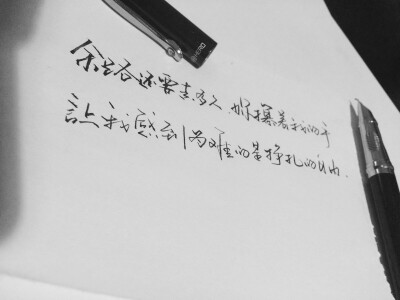 余路还要走多久 你攥着我的手
让我感到为难的是挣扎的自由.